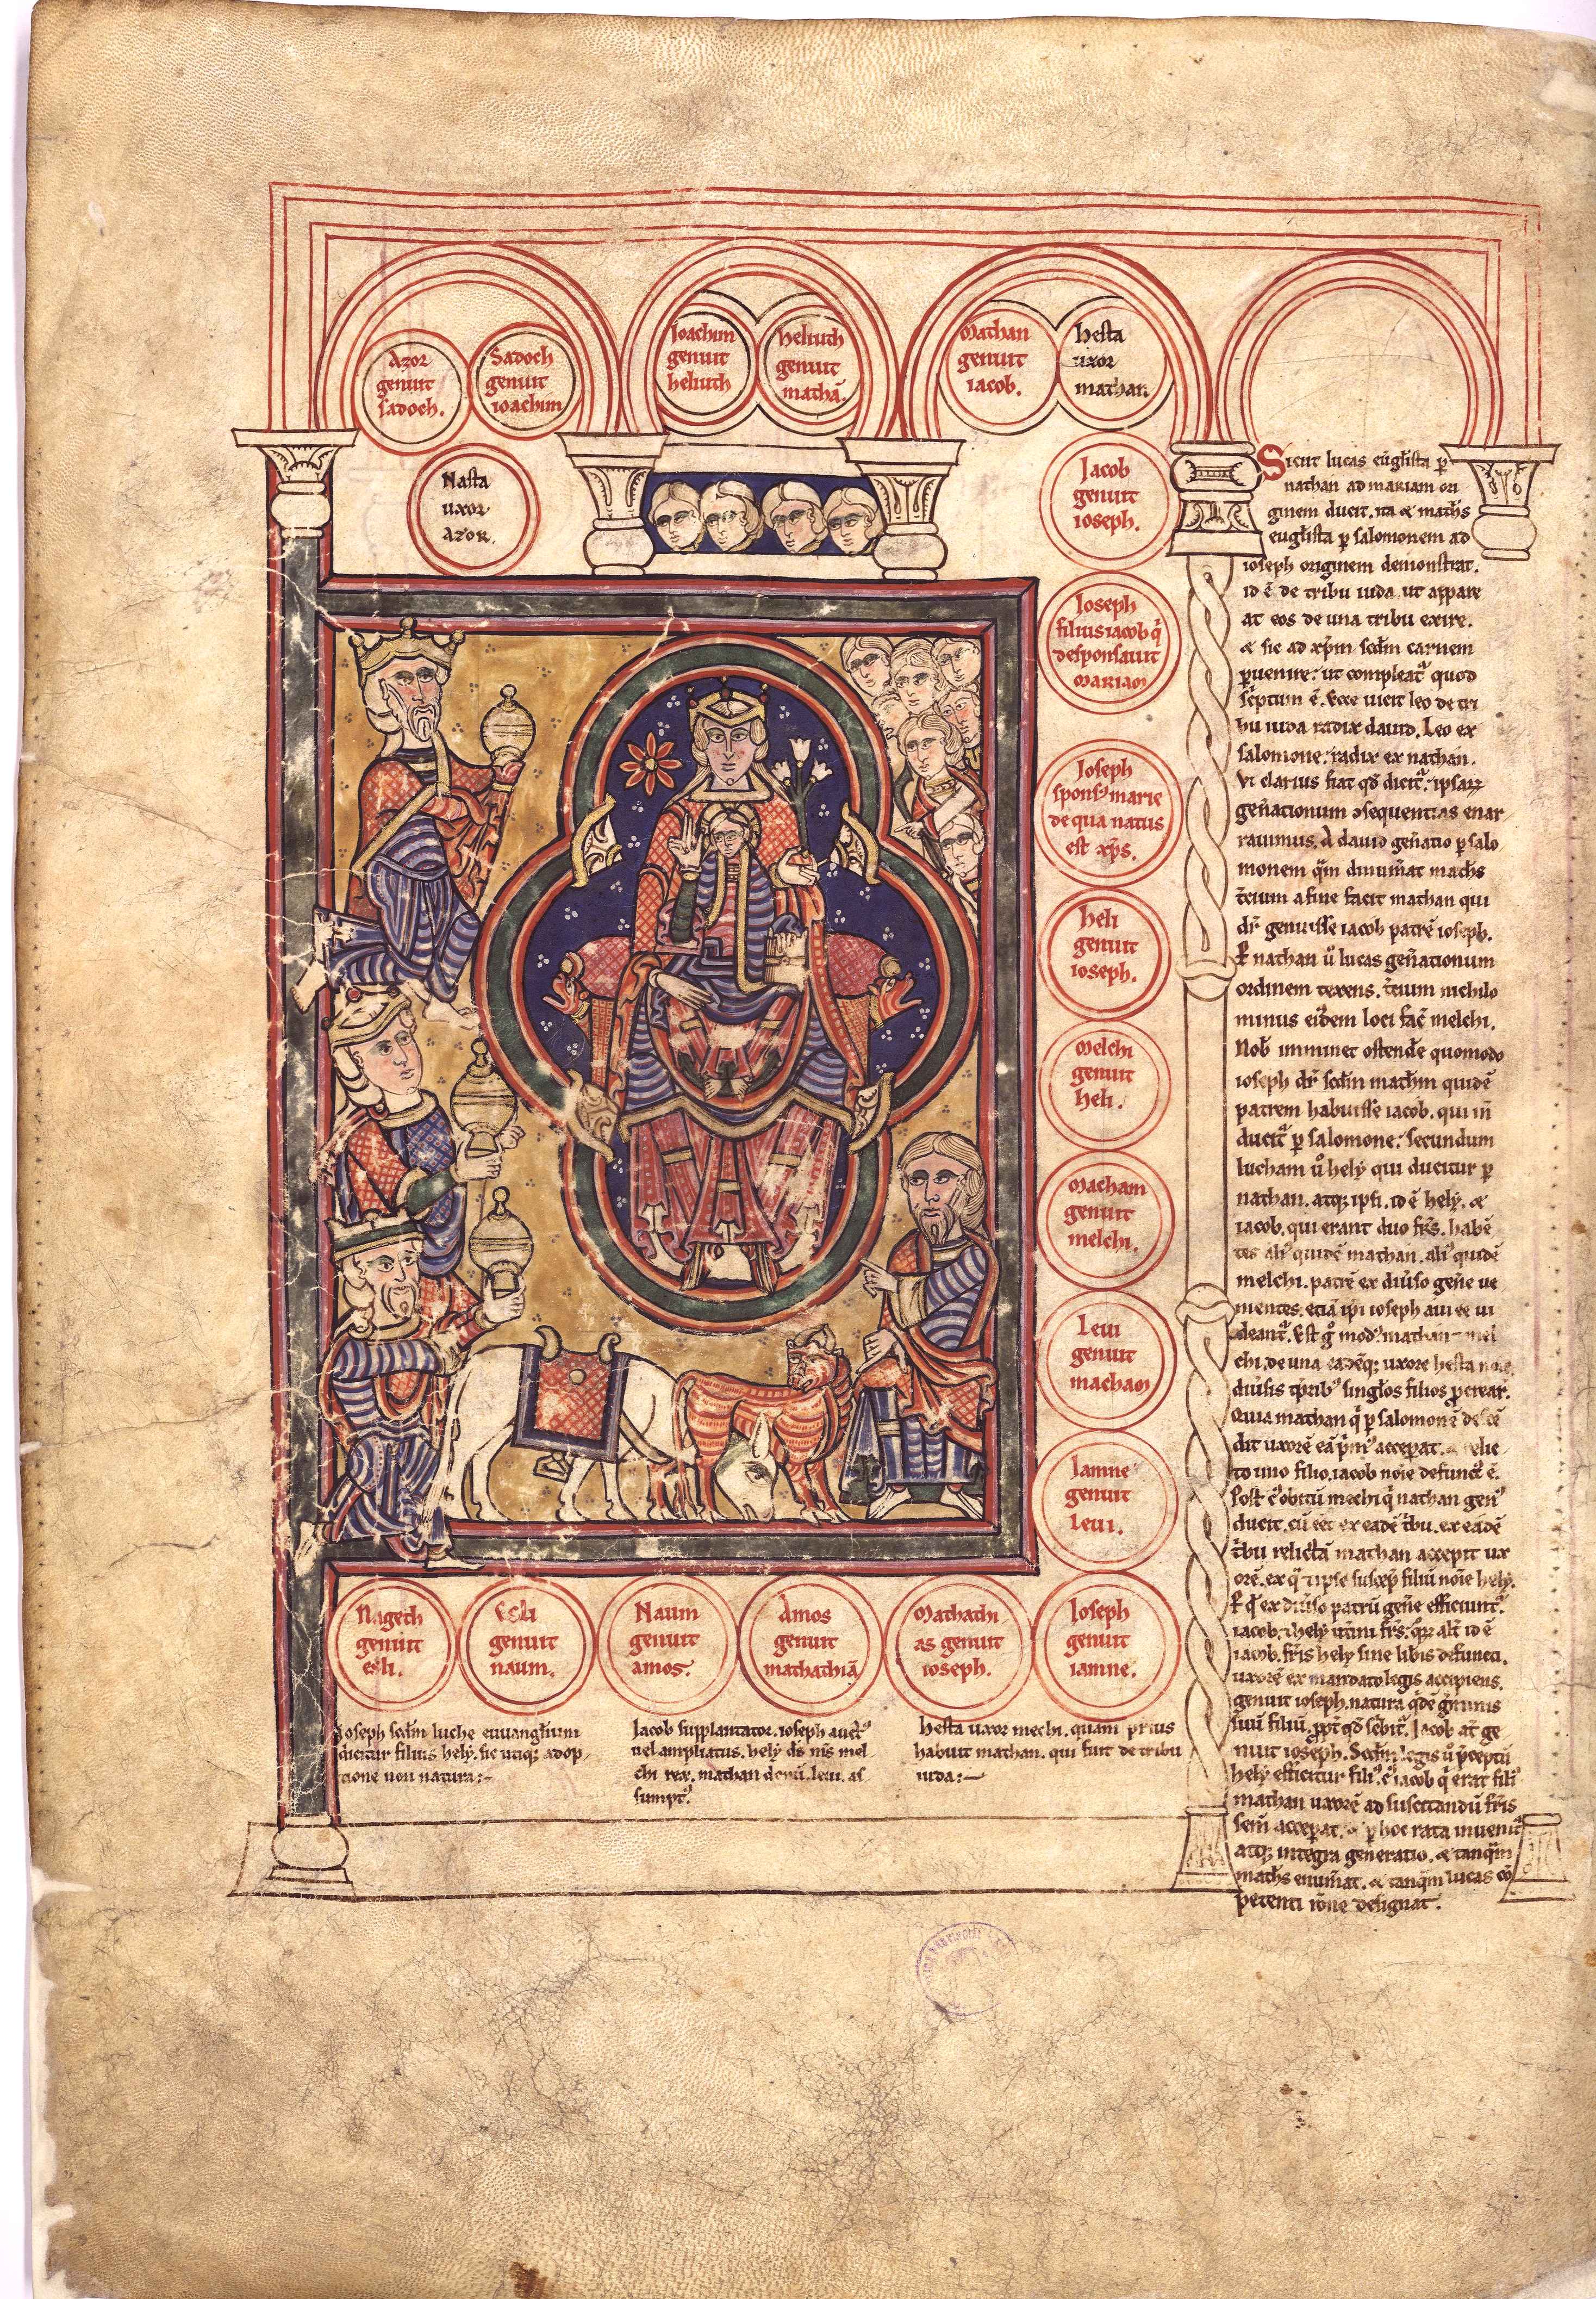 Azor
genuit
sadoch.
Sadoch
genuit
ioachim
Ioachim
genuit
heliuth
heliuth
genuit
mathā.
Mathan
genuit
iacob.
hesta
uxor
mathan.
Nasta
uxor
azor.
Iacob
genuit
ioseph.
Ioseph
filius iacob q̇
desponsauit
mariam
Ioseph
spons᷒ marie
de qua natus
est xp̄s.
heli
genuit
ioseph.
Melchi
genuit
heli.
Matham
genuit
melchi.
Leui
genuit
matham
Iamne
genuit
Leui.
Nageth
genuit
esli.
Esli
genuit
naum.
Naum
genuit
amos.
Amos
genuit
mathathiā
Mathathi
as genuit
ioseph.
Ioseph
genuit
iamne.
Ioseph scdm̄ luche euuanglium
dicitur filius hely. sic utiq; adop
tione non natura:-
Iacob supplantator. ioseph auct᷒
uel ampliatus. hely ds̄ ms̄ mel
chi rex. mathan donū. leui. as
sumpt᷒
hesta uxor mechi. quam prius
habuit mathan. qui fuit de tribu
iuda:-
Sicut lucas euḡlista p̄
nathan ad mariam ori
ginem ducit. ita & math̄s
euḡlista p̄ salomonem ad
ioseph originem demonstrat.
id ē de tribu iuda. ut appare
at eos de una tribu exire.
& sic ad xp̄m scdm̄ carnem
puenire. ut compleat᷒ quod
scptum ē. ecce uicit leo de tri
bu iuda radix dauid. Leo ex
salomone. radix ex nathan.
Vt clarius fiat qd̄ dicit᷒. ipsaꝝ
gen̄ationum ↄsequentias enar
rauimus. A dauid gen̄atio p̄ salo
monem qm̄ dinum̄at math̄s
t̄cium a fine facit mathan qui
dr̄ genuisse iacob patrē ioseph.
P̄ nathan ū lucas gen̄ationum
ordinem texens. t̄cium nichilo
minus eidem loci fac̄ melchi.
Nob̄ imminet ostendē quomodo
ioseph dr̄ scdm̄ mathm̄ quidē
patrem habuisse iacob. qui in̄
ducit᷒ p̄ salomonē. secundum
lucham ū hely qui ducitur p̄
nathan. atq; ipsi. id ē hely. &
iacob. qui erant duo fr̄s. habē
tes ali᷒ quidē mathan. ali᷒ quidē
melchi. patrē ex diūso gen̄e ue
nientes. etiā ipi ioseph aui ee ui
deant᷒. Est g̊ mod᷒ mathan mel
chi. de una eadēq; uxore hesta noīe
diūsis tp̄rib᷒ singl̄os filios pcrear.
Quia mathan q̇ p̄ salomonē descē
dit uxorē eā pm̄᷒ acceperat. relic
to uno filio. iacob noīe defunct᷒ ē.
Post c᷒ obitū mechi q̇ nathan gen᷒
ducit. cū eēt ex eadē tbu. ex eadē
tbu relictā mathan accepit ux
orē. ex q̇ & ipse suscep̄ filiū noīe hely.
P̄ q̇ ex diūso patrū gen̄e efficiunt᷒.
iacob. & hely ut̄ini fr̄s. quoꝝ alt̄ id ē
iacob. fr̄is hely sine lib̄is defuncti.
uxorē ex mandato legis accipiens.
genuit ioseph. natura qdē ḡminis
suū filiū. ppt̄ qd̄ scbit᷒. Iacob aūt ge
nuit ioseph. Scdm̄ legis ū pceptū
hely efficitur fili᷒. c᷒ iacob q̇ erat fili᷒
mathan uxorē ad suscitandū fr̄is
sem̄ acceperat. & p̄ hoc rata inuenit᷒
atq; integra generatio. & tanqm̄
math̄s enum̄at. & tanqm̄ lucas cō
petenti rōne designat.